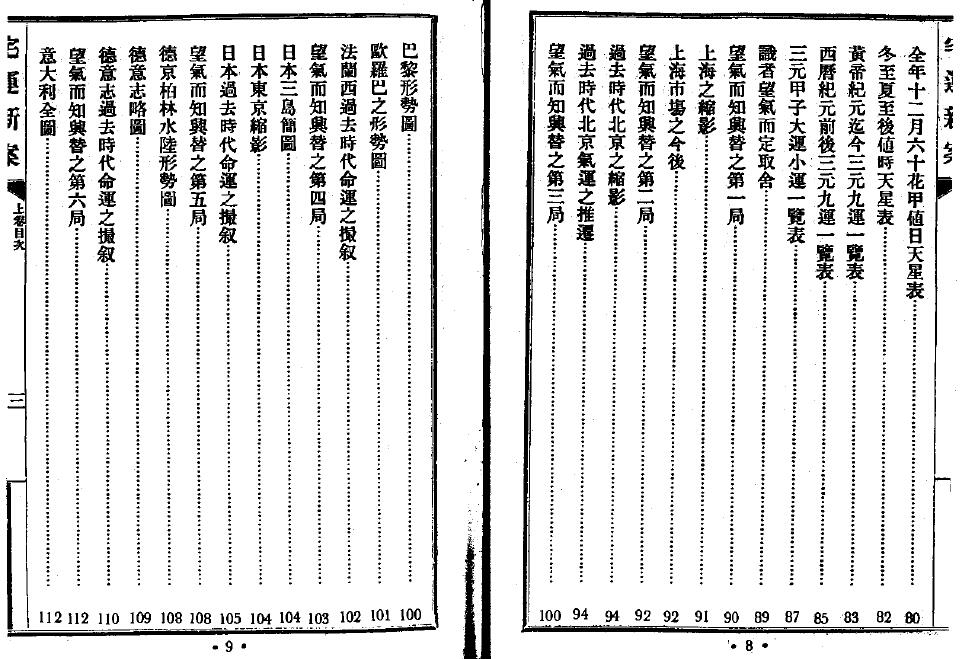 全年十二月六十花甲值日天星表 80
冬至夏至後値時天星表 82
黃帝紀元迄今三元九運一覽表 83
西曆紀元前後三元九運一覽表 85
三元甲子大運小運一覽表 87
識者望氣而定取舍 89
望氣而知興替之第一局 90
上海之縮影 91
上海市塲之今後 92
望氣而知興替之第二局 92
過去時代北京之縮影 94
過去時代北京氣運之推遷 94
望氣而知興替之第三局 100
• 8 •
巴黎形勢圖 100
歐羅巴之形勢圖 101
法蘭西過去時代命運之撮叙 102
望氣而知興替之第四局 103
日本三島簡圖 104
日本東京縮影 104
日本過去時代命運之撮叙 105
望氣而知興替之第五局 108
德京柏林水陸形勢圖 108
德意志略圖 109
德意志過去時代命運之撮叙 110
望氣而知興替之第六局 112
意大利全圖 112
宅運新案
上卷目次
三
• 9 •